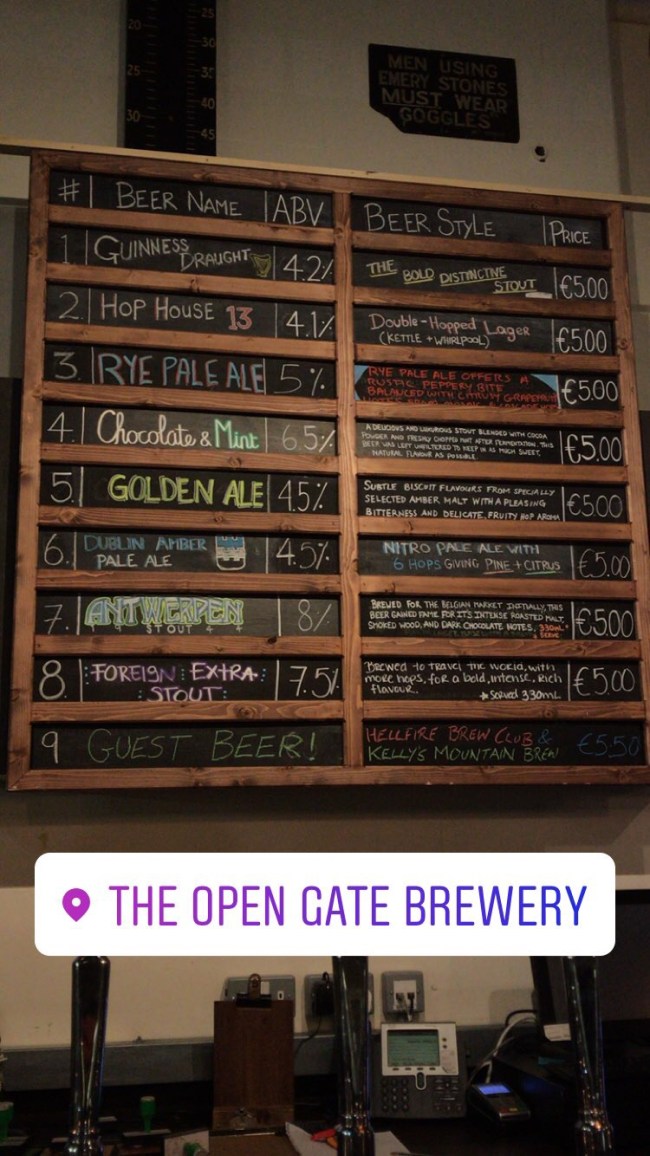 20
25
30
25
30
35
40
45
MEN USING
EMERY STONES
MUST WEAR
GOGGLES
# BEER NAME ABV BEER STYLE PRICE
1 GUINNESS DRAUGHT 4.2% THE BOLD DISTINCTIVE STOUT €5.00
2. HOP HOUSE 13 4.1% Double-Hopped Lager
(KETTLE + WHIRLPOOL) €5.00
3. RYE PALE ALE 5% RYE PALE ALE OFFERS A
RUSTIC PEPPERY BITE
BALANCED WITH CITRUSY GRAPEFRUIT
€5.00
4. Chocolate & Mint 6.5% A DELICIOUS AND LUXURIOUS STOUT BLENDED WITH COCOA
POWDER AND FRESHLY CHOPPED MINT AFTER FERMENTATION. THIS
BEER WAS LEFT UNFILTERED TO KEEP IN AS MUCH SWEET,
NATURAL FLAVOUR AS POSSIBLE. €5.00
5. GOLDEN ALE 4.5% SUBTLE BISCUIT FLAVOURS FROM SPECIALLY
SELECTED AMBER MALT WITH A PLEASING
BITTERNESS AND DELICATE, FRUITY HOP AROMA €5.00
6. DUBLIN AMBER
PALE ALE 4.5% NITRO PALE ALE WITH
6 HOPS GIVING PINE + CITRUS €5.00
7. ANTWERPEN
STOUT 8% BREWED FOR THE BELGIAN MARKET INITIALLY, THIS
BEER GAINED FAME FOR ITS INTENSE ROASTED MALT,
SMOKED WOOD, AND DARK CHOCOLATE NOTES. 330ML
SERVE €5.00
8. FOREIGN EXTRA
STOUT 7.5% Brewed to travel the world, with
more hops, for a bold, intense, rich
flavour. * Served 330mL €5.00
9 GUEST BEER! HELLFIRE BREW CLUB &
KELLY'S MOUNTAIN BREW €5.50
THE OPEN GATE BREWERY